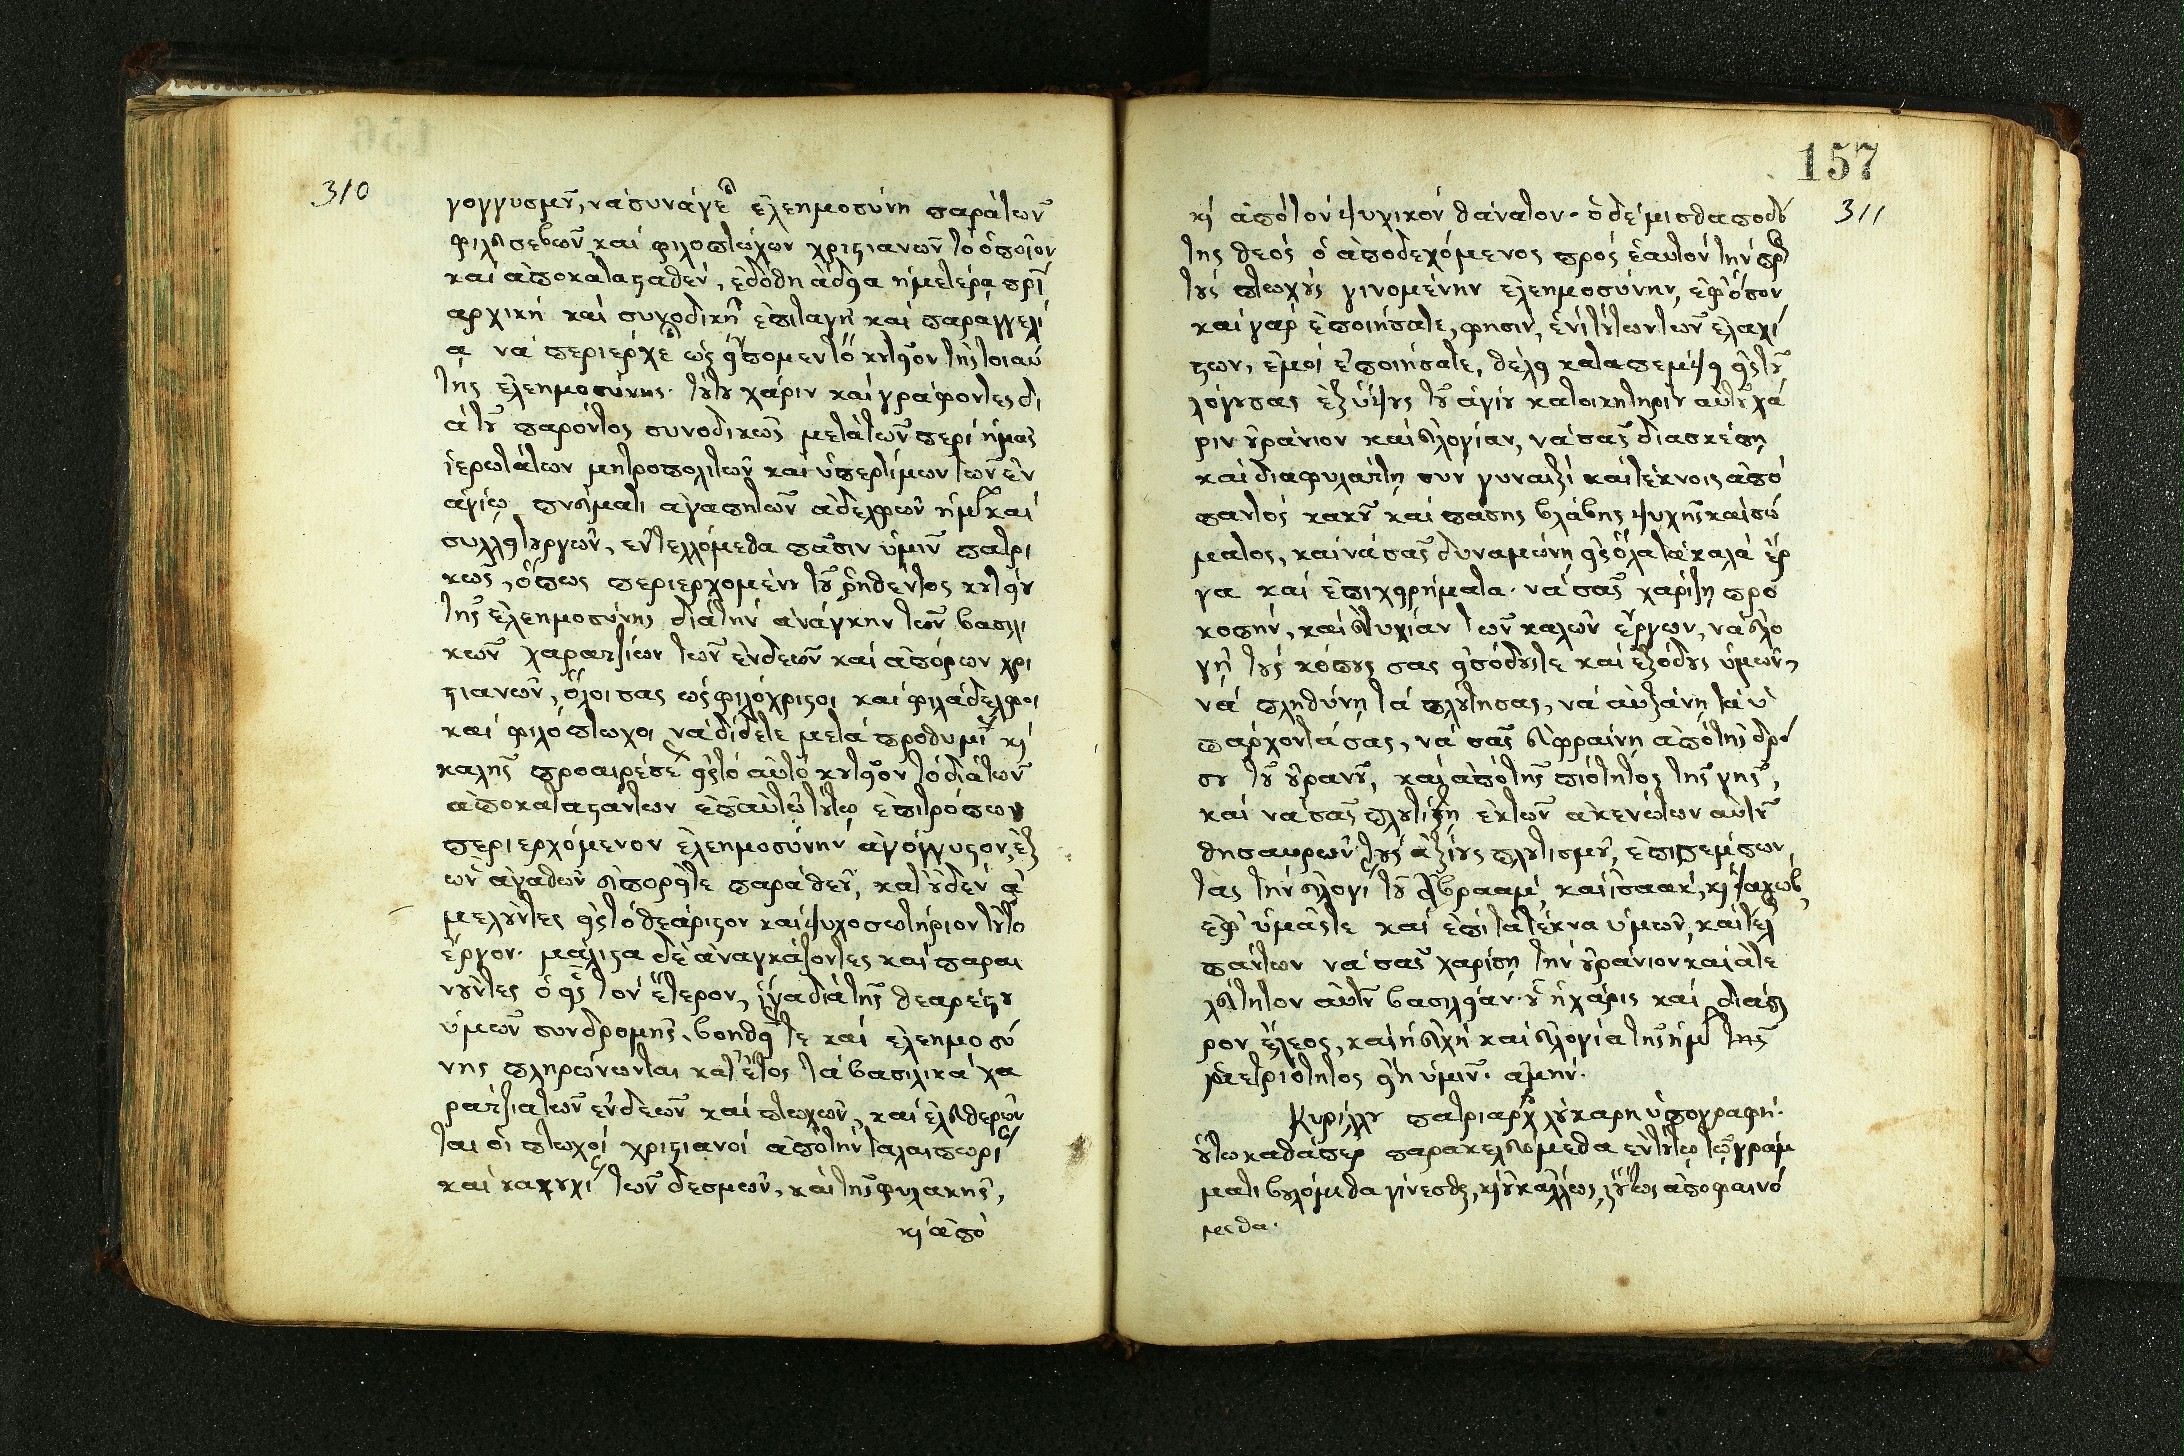 310
γογγυσμοῦ, νὰ συνάγει ἐλεημοσύνη παρὰ τῶν
φιλευσεβῶν καὶ φιλοπτώχων χριστιανῶν τὸ ὁποῖον
καὶ ἀποκατασταθὲν, ἐδόθη ἄδεια ἡμετέρα πρι
αρχικὴ καὶ συνοδικὴ ἐπιταγὴ καὶ παραγγελί
α νὰ περιέρχε ὡς εἴπομεν τὸ κυτεῖον τῆς τοιαύ
της ἐλεημοσύνης. τούτου χάριν καὶ γράφοντες δι
ὰ τοῦ παρόντος συνοδικῶς μετὰ τῶν περὶ ἡμᾶς
ἱερωτάτων μητροπολιτῶν καὶ ὑπερτίμων τῶν ἐν
ἁγίῳ πνεύματι ἀγαπητῶν ἀδελφῶν ἡμῶν καὶ
συλλειτουργῶν, ἐντελλόμεθα πᾶσιν ὑμῖν πατρι
κῶς, ὅπως περιερχομένου τοῦ ῥηθέντος κυτείου
τῆς ἐλεημοσύνης διὰ τὴν ἀνάγκην τῶν βασιλι
κῶν χαρατζίων τῶν ἐνδεῶν καὶ ἀπόρων χρι
στιανῶν, ὅλοι σας ὡς φιλόχριστοι καὶ φιλάδελφοι
καὶ φιλόπτωχοι νὰ δίδετε μετὰ προθυμί κὶ
καλῆς προαιρέσε εἰς τὸ αὐτὸ κυτεῖον τὸ διὰ τῶν
ἀποκαταστάντων ἐπ' αὐτῷ τούτῳ ἐπιτρόπων
περιερχόμενον ἐλεημοσύνην ἀγόγγυστον, ἐξ
ὧν ἀγαθῶν εὐπορεῖτε παρὰ θεοῦ, κατ' οὐδὲν ἀ
μελοῦντες εἰς τὸ θεάρεστον καὶ ψυχοσωτήριον τοῦτο
ἔργον. μάλιστα δὲ ἀναγκάζοντες καὶ παραι
νοῦντες ὁ εἷς τὸν ἕτερον, ἵνα διὰ τῆς θεαρέστου
ὑμῶν συνδρομῆς, βοηθεί τε καὶ ἐλεημοσύ
νης πληρώνωνται κατ' ἔτος τὰ βασιλικὰ χα
ράτζια τῶν ἐνδεῶν καὶ πτωχῶν, καὶ ἐλευθερῶν
ται οἱ πτωχοὶ χριστιανοὶ ἀπὸ τὴν ταλαιπωρί
καὶ κακουχί τῶν δεσμῶν, καὶ τῆς φυλακῆς,
κὶ ἀπὸ
157
311
κὶ ἀπὸ τὸν ψυχικὸν θάνατον. ὁ δὲ μισθαποδό
της θεὸς ὁ ἀποδεχόμενος πρὸς ἑαυτὸν τὴν πρ
τοὺς πτωχοὺς γινομένην ἐλεημοσύνην, ἐφ' ὅσον
καὶ γὰρ ἐποιήσατε, φησὶν, ἑνὶ τούτων τῶν ἐλαχί
στων, ἐμοὶ ἐποιήσατε, θέλει καταπέμψει εἰς τοῦ
λόγου σας ἐξ ὕψους τοῦ ἁγίου κατοικητηρίου αὐτοῦ χά
ριν οὐράνιον καὶ εὐλογίαν, νὰ σᾶς διασκέπῃ
καὶ διαφυλάττῃ σὺν γυναιξὶ καὶ τέκνοις ἀπὸ
παντὸς κακοῦ καὶ πάσης βλάβης ψυχῆς καὶ σώ
ματος, καὶ νὰ σᾶς δυναμώνῃ εἰς ὅλα τὰ καλὰ ἔρ
γα καὶ ἐπιχειρήματα. νὰ σᾶς χαρίζῃ προ
κοπὴν, καὶ εὐτυχίαν τῶν καλῶν ἔργων, νὰ εὐλο
γῇ τοὺς κόπους σας εἰσόδους τε καὶ ἐξόδους ὑμῶν,
νὰ πληθύνῃ τὰ πλούτη σας, νὰ αὐξάνῃ τὰ ὑ
πάρχοντά σας, νὰ σᾶς εὐφραίνῃ ἀπὸ τῆς δρό
σου τοῦ οὐρανοῦ, καὶ ἀπὸ τῆς πιότητος τῆς γῆς,
καὶ νὰ σᾶς πλουτίζῃ ἐκ τῶν ἀκενώτων αὐτοῦ
θησαυρῶν τοὺς ἀξίους πλουτισμοῦ, ἐπιπέμπων
τας τὴν εὐλογί τοῦ Ἀβραὰμ, καὶ ἰσαὰκ, κὶ ἰακὼβ,
ἐφ' ὑμᾶς τε καὶ ἐπὶ τὰ τέκνα ὑμῶν, καὶ τέλ
πάντων νὰ σᾶς χαρίσῃ τὴν οὐράνιον καὶ ἀτε
λεύτητον αὐτοῦ βασιλείαν. οὗ ἡ χάρις καὶ τὸ ἄπει
ρον ἔλεος, καὶ ἡ εὐχὴ καὶ εὐλογία τῆς ἡμ τῆς
μετριότητος εἴη ὑμῖν. ἀμήν.
Κυρίλλου πατριάρχ λουκάρη ὑπογραφή.
οὕτω καθάπερ παρακελευόμεθα ἐν τούτῳ τῷ γράμ
ματι βουλόμεθα γίνεσθε, κὶ οὐκ ἄλλως, οὕτως ἀποφαινό
μεθα.